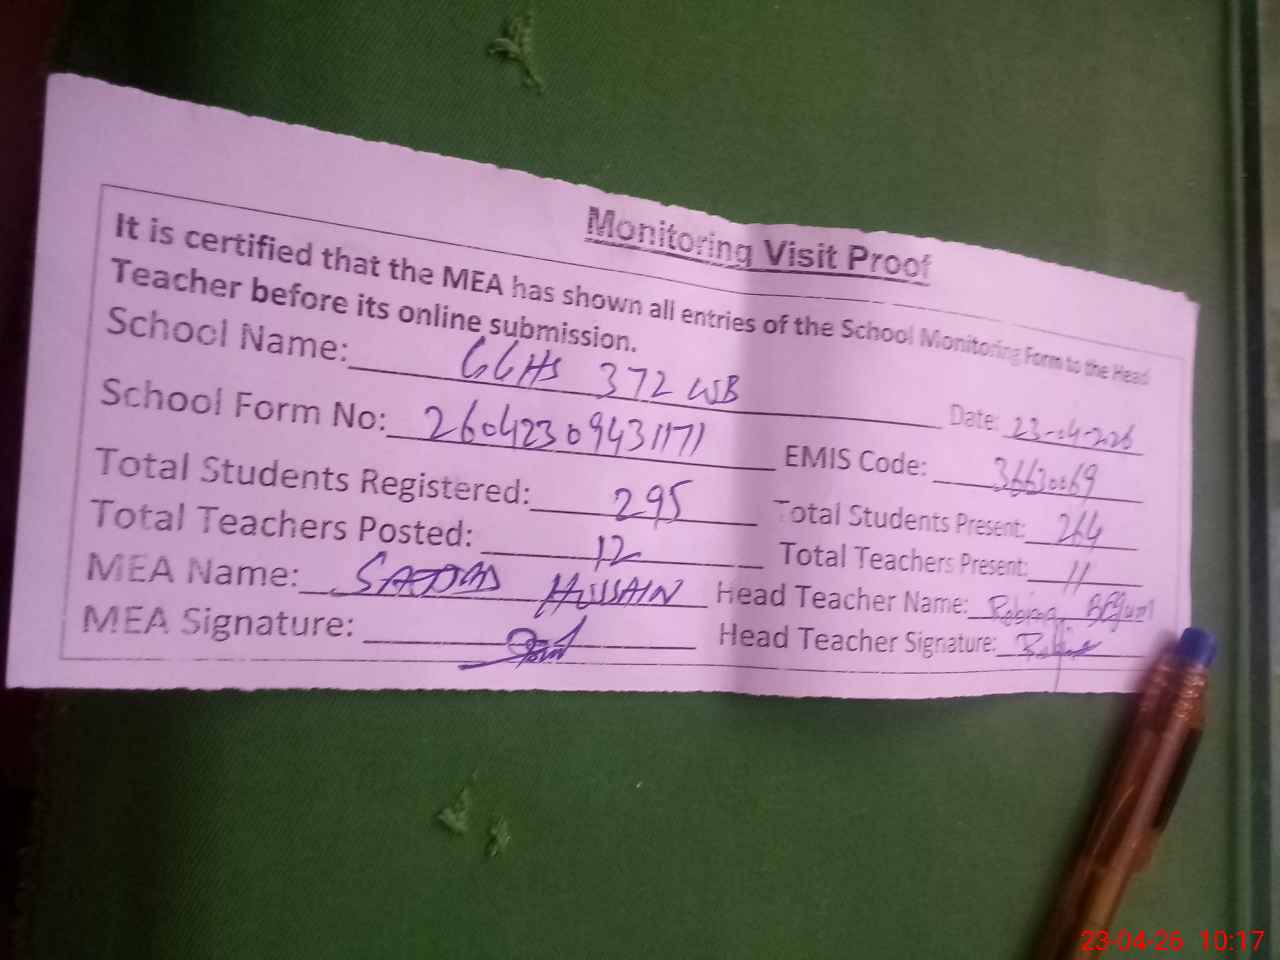 Monitoring Visit Proof
It is certified that the MEA has shown all entries of the School Monitoring Form to the Head
Teacher before its online submission.
School Name: GGHS 372 WB Date: 23-04-2026
School Form No: 26042309431171 EMIS Code: 36630069
Total Students Registered: 295 Total Students Present: 264
Total Teachers Posted: 12 Total Teachers Present: 11
MEA Name: SAJJAD HUSSAIN Head Teacher Name: Robina BEgum
MEA Signature: Head Teacher Signature:
23-04-26 10:17